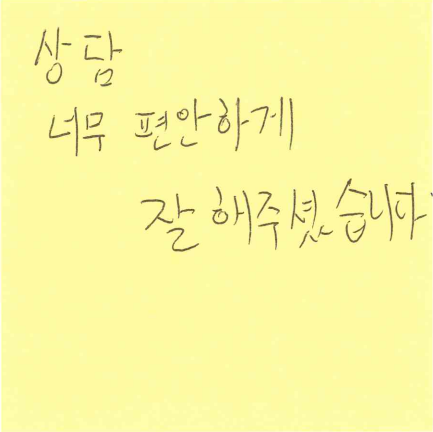 상담
너무 편안하게
잘 해주셨습니다